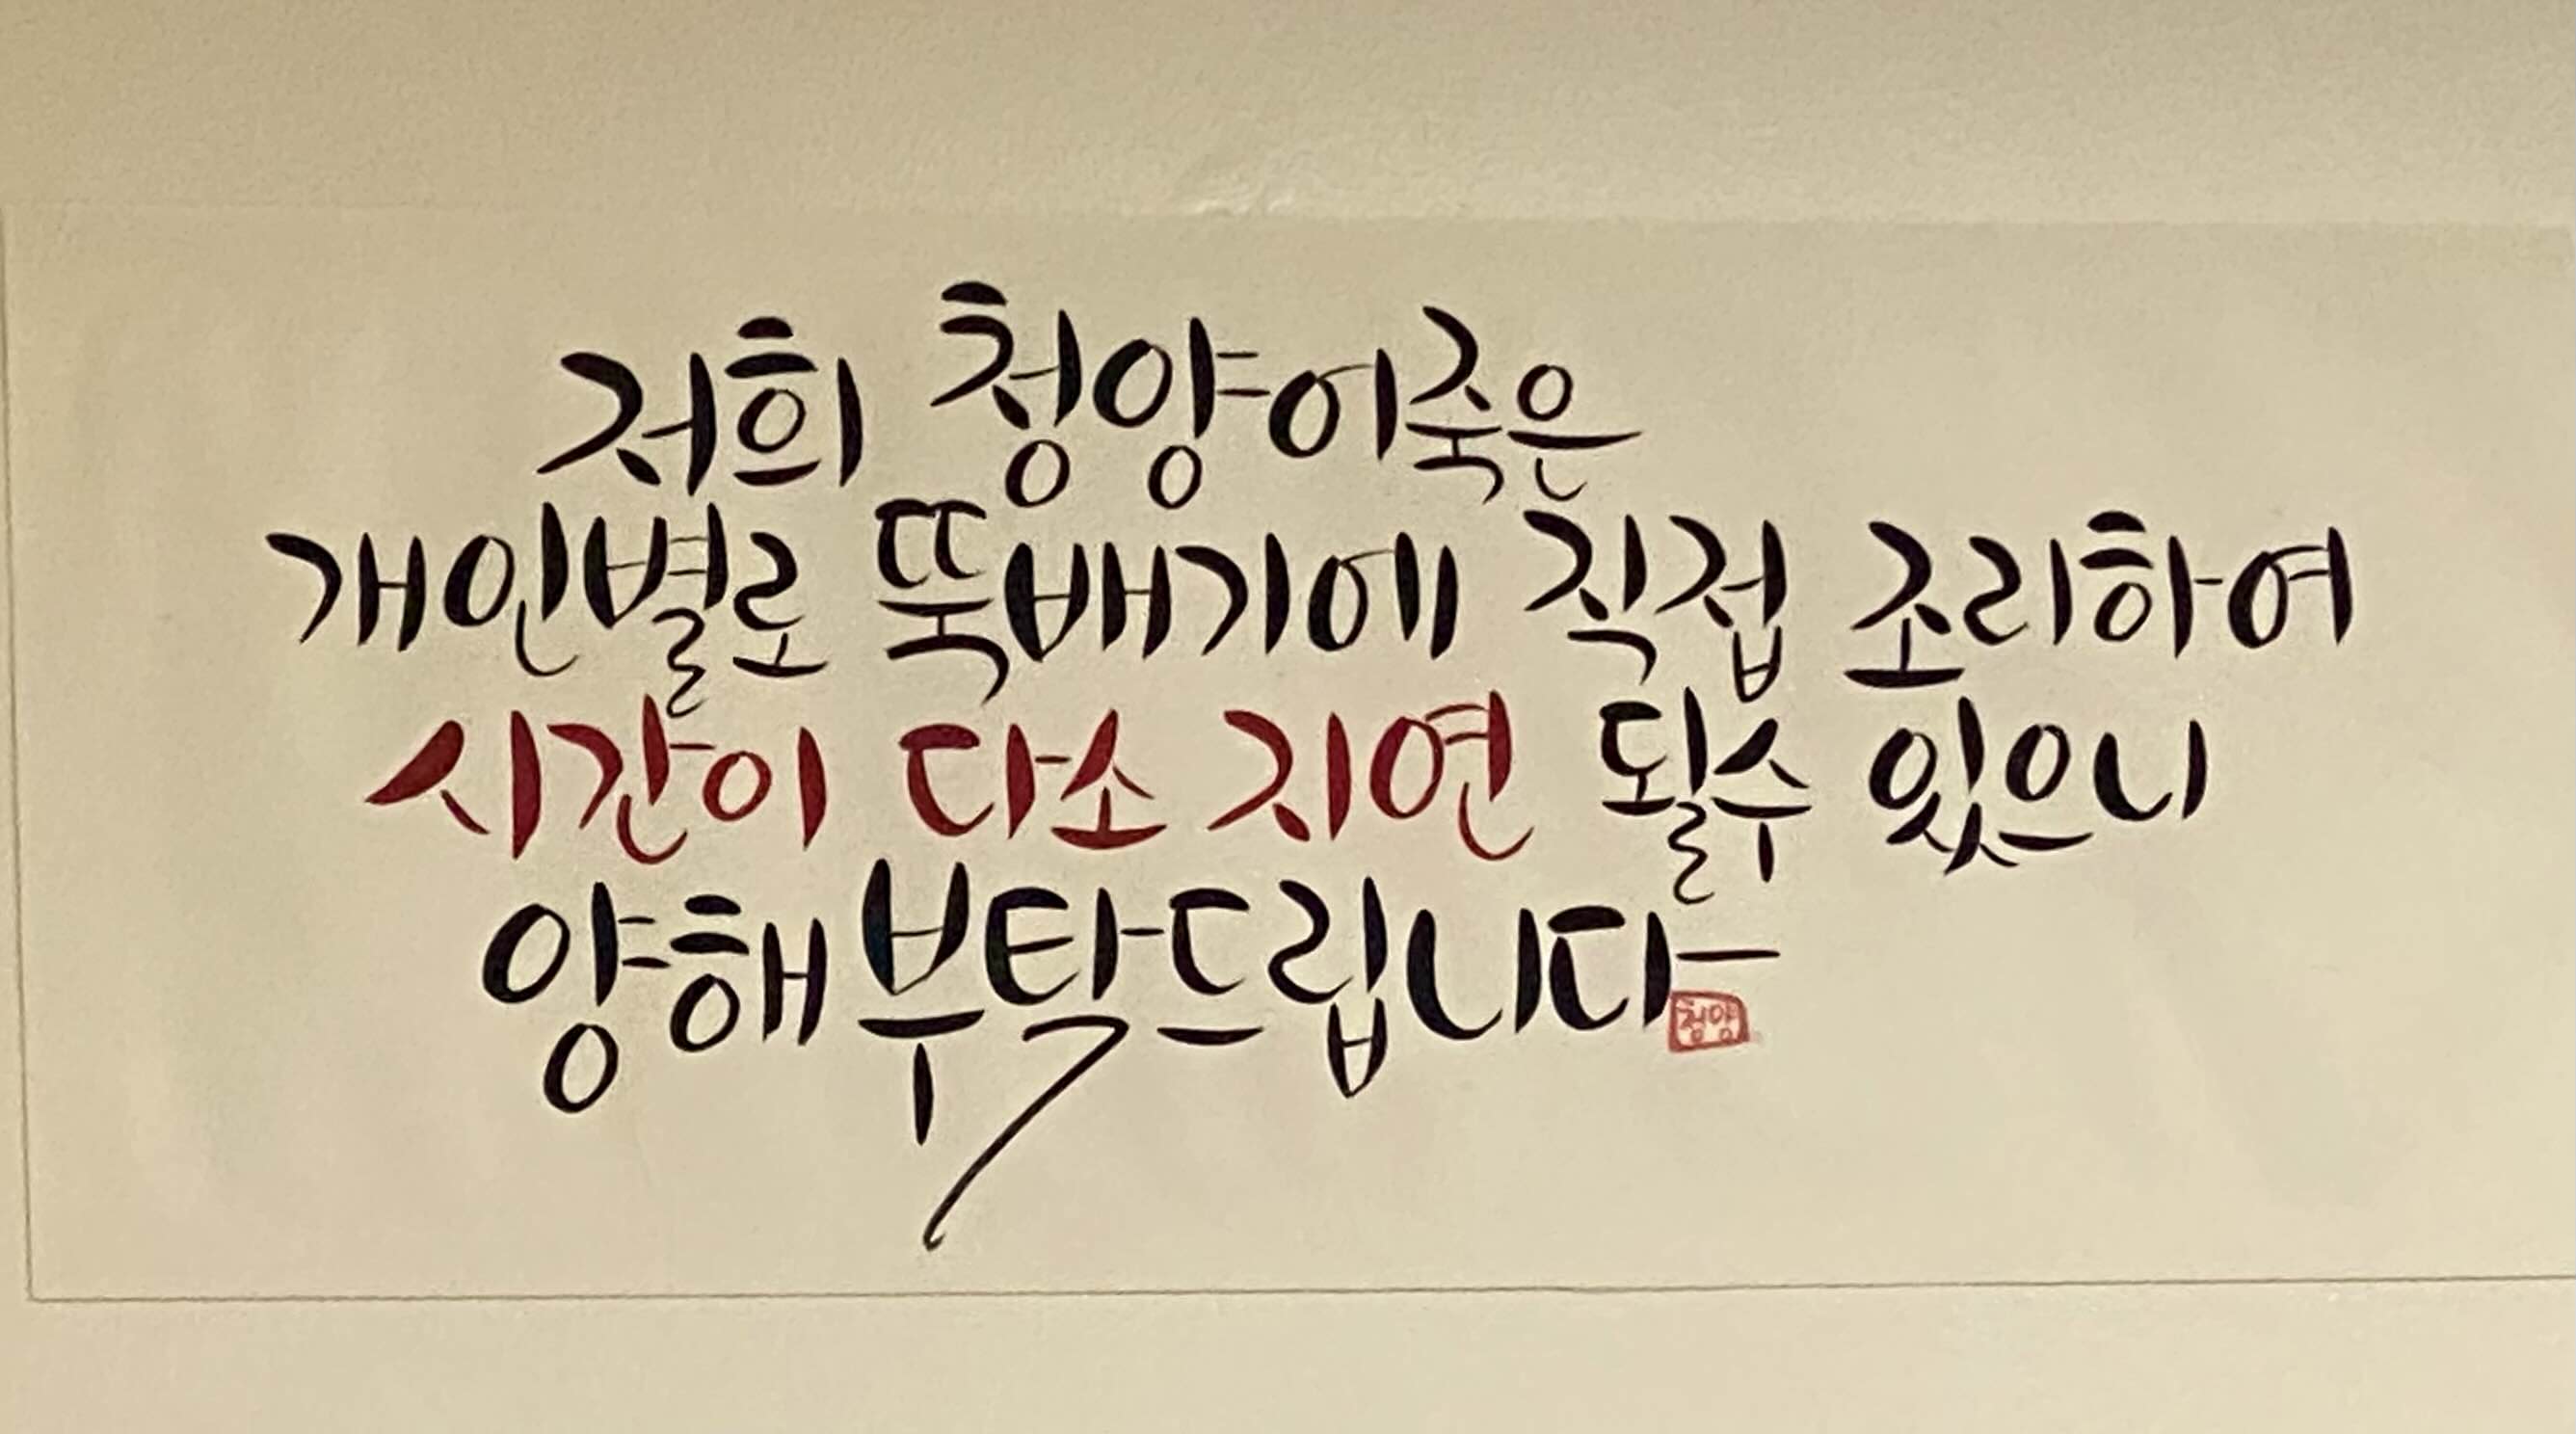 저희 청양어죽은
개인별로 뚝배기에 직접 조리하여
시간이 다소 지연 될수 있으니
양해부탁드립니다
청양